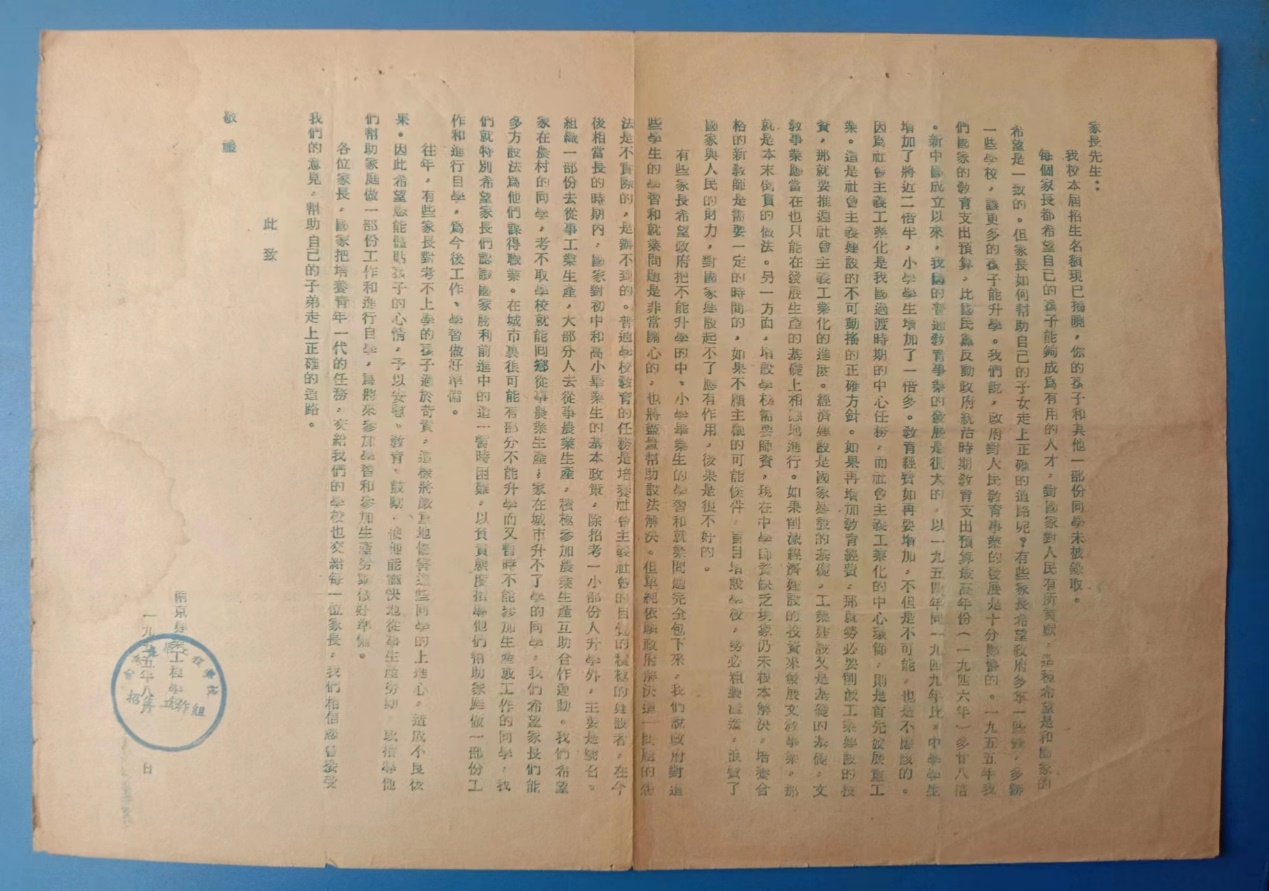 家長先生：
我校本屆招生名額現已揭曉，你的孩子和其他一部份同學未被錄取。
每個家長都希望自己的孩子能夠成爲有用的人才，對國家對人民有所貢獻，這種希望是和國家的
希望是一致的。但家長如何幫助自己的子女走上正確的道路呢？有些家長希望政府多拿一些錢，多辦
一些學校，讓更多的孩子能升學。我們說，政府對人民教育事業的發展是十分關懷的。一九五五年我
們國家的教育支出預算，比國民黨反動政府統治時期教育支出預算最高年份（一九四六年）多廿八倍
。新中國成立以來，我國的普通教育事業的發展是很大的，以一九五四年同一九四九年比。中學學生
增加了將近二倍半，小學學生增加了一倍多。教育經費如再要增加，不但是不可能，也是不應該的。
因爲社會主義工業化是我國過渡時期的中心任務，而社會主義工業化的中心環節，則是首先發展重工
業。這是社會主義建設的不可動搖的正確方針。如果再增加教育經費，那就勢必要削減工業建設的投
資，那就要推遲社會主義工業化的進展。經濟建設是國家建設的基礎，工業建設又是基礎的基礎，文
教事業應當在也只能在發展生產的基礎上相應地進行。如果削減經濟建設的投資來發展文教事業，那
就是本末倒置的做法。另一方面，增設學校需要師資，現在中學師資缺乏現象仍未根本解決，培養合
格的新教師是需要一定的時間的，如果不顧主觀的可能條件，盲目增設學校，勢必粗製濫造，浪費了
國家與人民的財力，對國家建設起不了應有作用，後果是很不好的。
有些家長希望政府把不能升學的中、小學畢業生的學習和就業問題完全包下來，我們說政府對這
些學生的學習和就業問題是非常關心的，也將盡量幫助設法解決。但單純依賴政府解決這一問題的想
法是不實際的，是辦不到的。普通學校教育的任務是培養社會主義社會的自覺的積極的建設者，在今
後相當長的時期內，國家對初中和高小畢業生的基本政策，除招考一小部份人升學外，主要是號召、
組織一部份去從事工業生產，大部分人去從事農業生產，積極參加農業生產互助合作運動。我們希望
家在農村的同學，考不取學校就能回鄉從事農業生產；家在城市升不了學的同學，我們希望家長們能
多方設法爲他們謀得職業。在城市裏很可能有部分不能升學而又暫時不能參加生產或工作的同學，我
們就特別希望家長們認識國家勝利前進中的這一暫時困難，以負責態度指導他們幫助家庭做一部份工
作和進行自學，爲今後工作、學習做好準備。
往年，有些家長對考不上學的孩子過於苛責，這樣將嚴重地傷害這些同學的上進心，造成不良後
果。因此希望您能體貼孩子的心情，予以安慰、教育、鼓勵，使他能愉快地從事生產勞動，或指導他
們幫助家庭做一部份工作和進行自學，爲將來參加學習和參加生產勞動做好準備。
各位家長，國家把培養青年一代的任務，交給我們的學校也交給每一位家長，我們相信您會接受
我們的意見，幫助自己的子弟走上正確的道路。
此致
敬禮
南京 工程學校
一九五五年八月 日
招生工作組